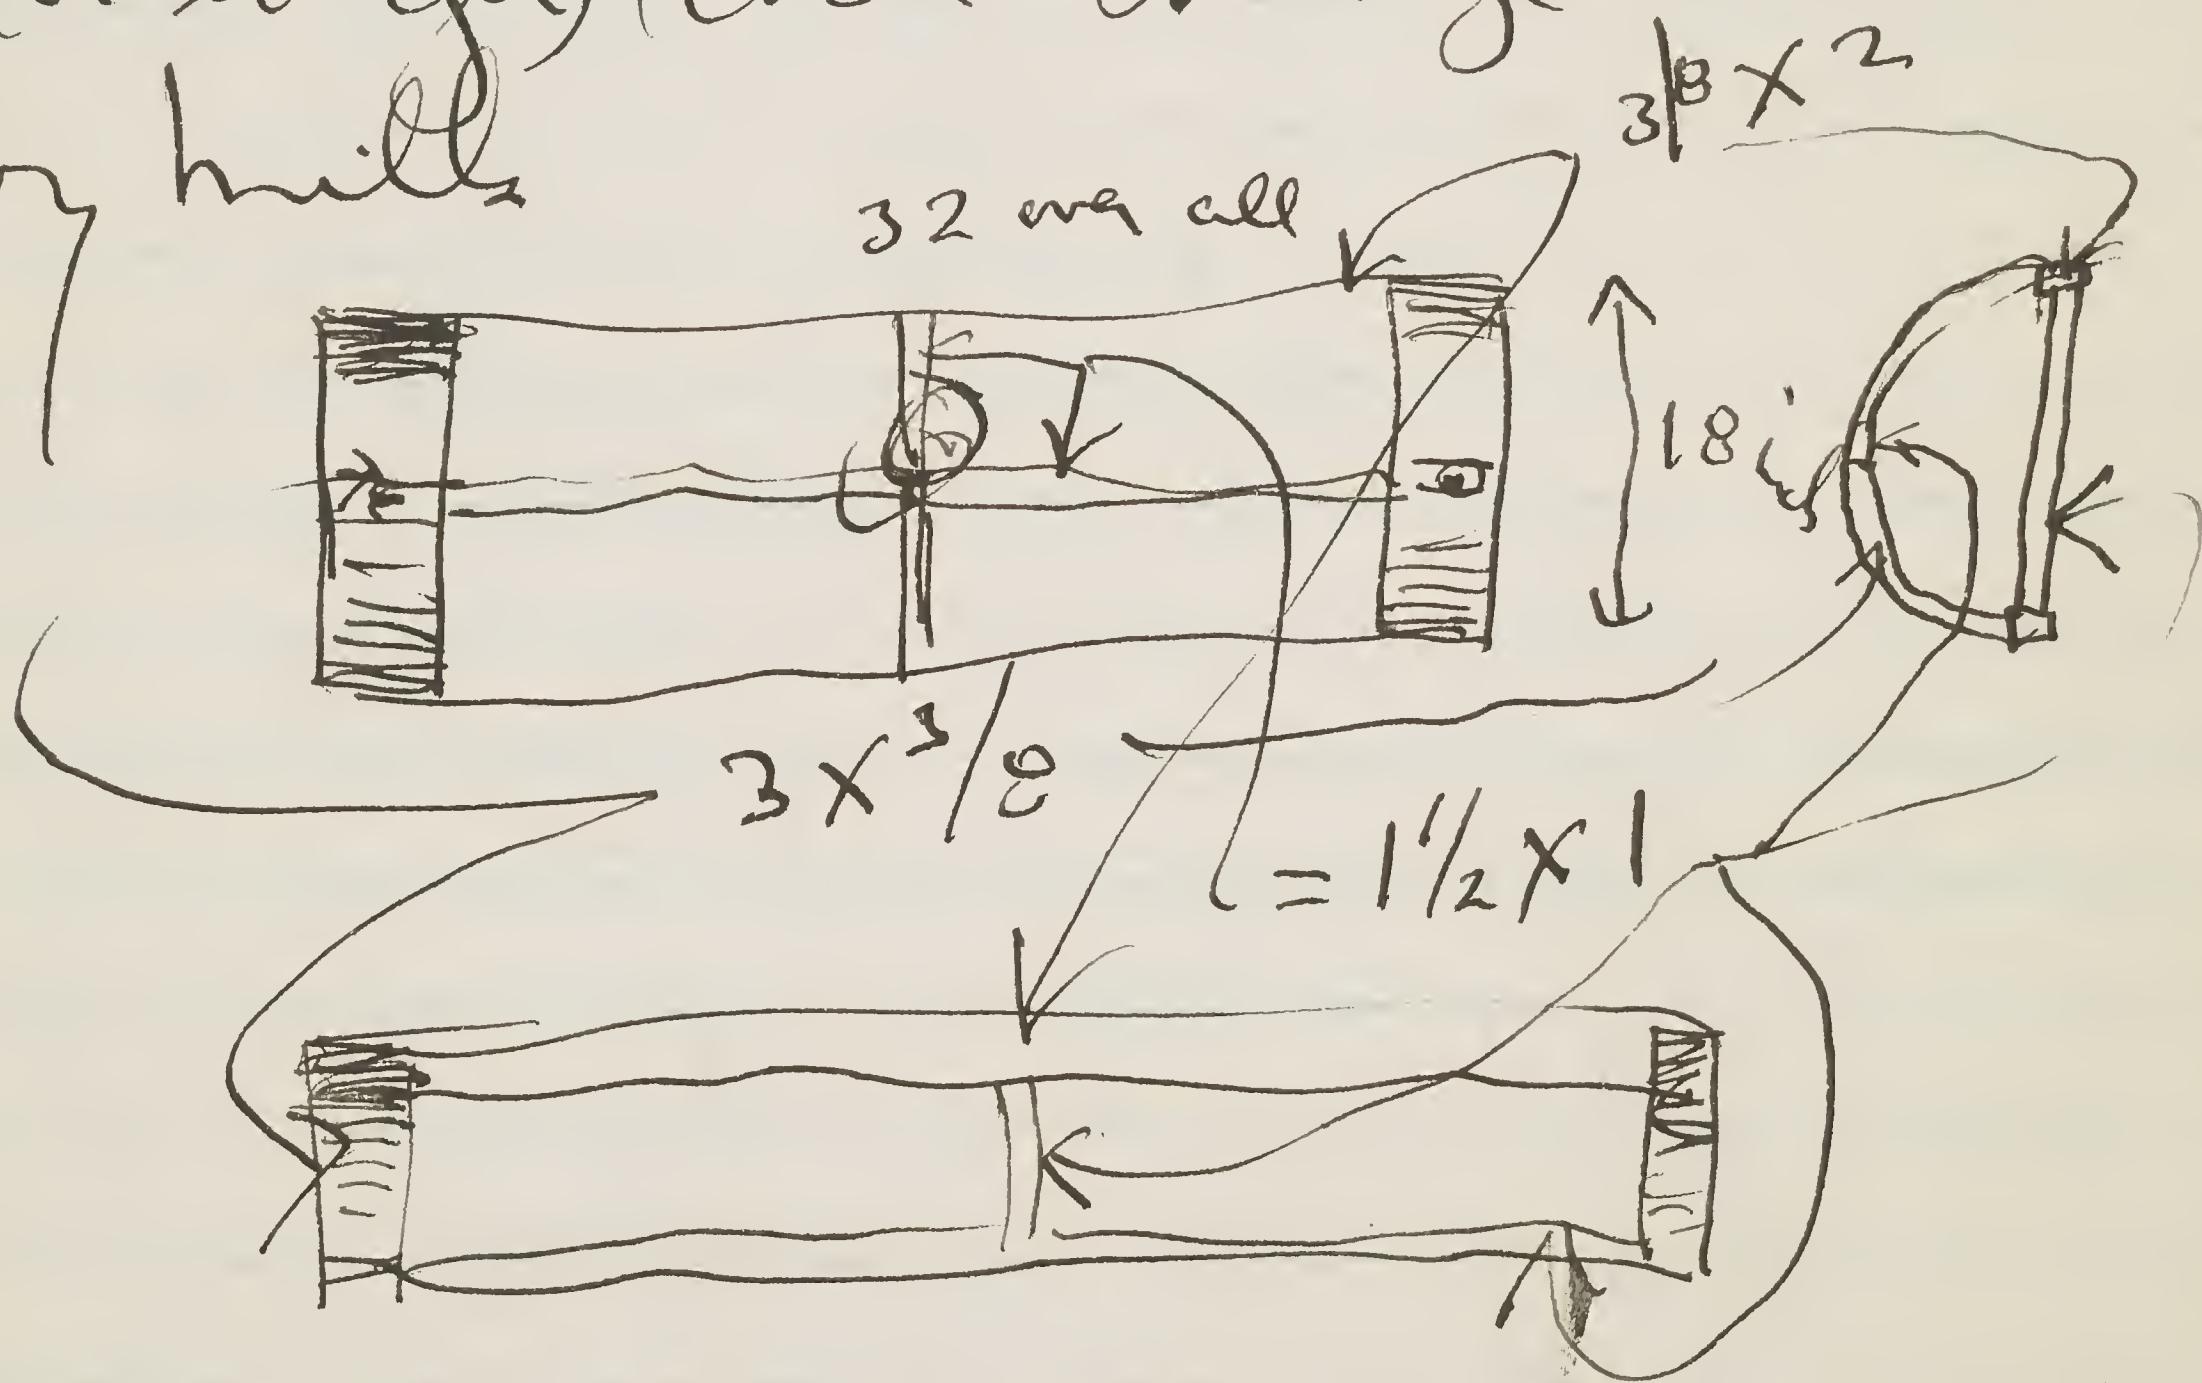 hills
3/8 X 2
32 over all
18 in
3 X 3/8
= 1 1/2 X 1